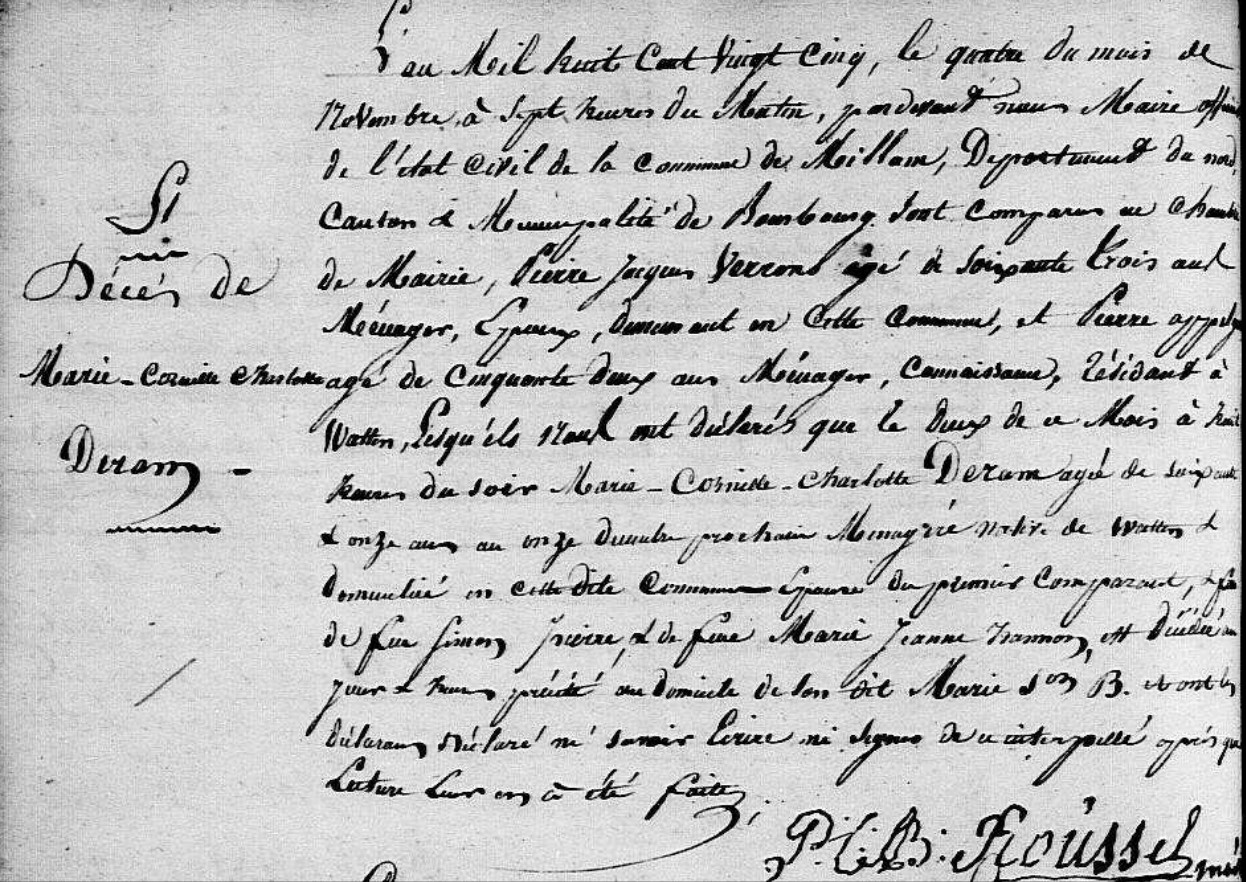 L'au Mil huit Cent Vingt Cinq, le quatre du mois de
Novembre, à Sept heures du Matin, pardevant nous Maire offici
de l'état Civil de la Commune de Millam, Departement du nord,
Canton & Municipalité de Bourbourg Sont Comparus en Chambre
de Mairie, Pierre Jacques Verron âgé de Soixante trois ans
Ménager, Epoux, demeurant en Cette Commune, et Pierre
agé de Cinquante deux ans Ménager, Connaissance, résidant à
Watten, Lesquéls Nous ont déclarés que le Deux de ce Mois à huit
heures du soir Marie-Cornille-Charlotte Deram agée de soixante
& onze ans au onze Decembre prochain Menagere native de Watten &
domiciliée en cette dite Commune Epouse du premier Comparant, & fille
de feu Simon Pierre, & de feue Marie Jeanne hannon, est Décédée au
jour & heure précité au domicile de son dit Marie S.on B. et ont les
déclarans déclaré ne savoir Ecrire ni signer de ce interpellé après que
Lecture Leur en à été faite,
P. C. B. Roussel
Décés de
Marie-Cornille Charlotte
Deram -